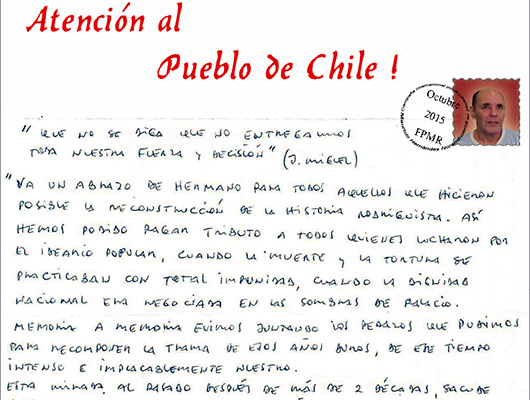 Atención al
Pueblo de Chile !
Octubre
2015
FPMR
" QUE NO SE DIGA QUE NO ENTREGAMOS
TODA NUESTRA FUERZA Y DECISIÓN" (J. MIGUEL)
"VA UN ABRAZO DE HERMANO PARA TODOS AQUELLOS QUE HICIERON
POSIBLE LA RECONSTRUCCIÓN DE LA HISTORIA RODRIGUISTA. ASÍ
HEMOS PODIDO PAGAR TRIBUTO A TODOS QUIENES LUCHARON POR
EL IDEARIO POPULAR, CUANDO LA MUERTE Y LA TORTURA SE
PRACTICABAN CON TOTAL IMPUNIDAD, CUANDO LA DIGNIDAD
NACIONAL ERA NEGOCIADA EN LAS SOMBRAS DE PALACIO.
MEMORIA A MEMORIA FUIMOS JUNTANDO LOS PEDAZOS QUE PUDIMOS
PARA RECOMPONER LA TRAMA DE ESOS AÑOS DUROS, DE ESE TIEMPO
INTENSO E IMPLACABLEMENTE NUESTRO.
ESTA MIRADA AL PASADO DESPUÉS DE MÁS DE 2 DÉCADAS, SACUDE